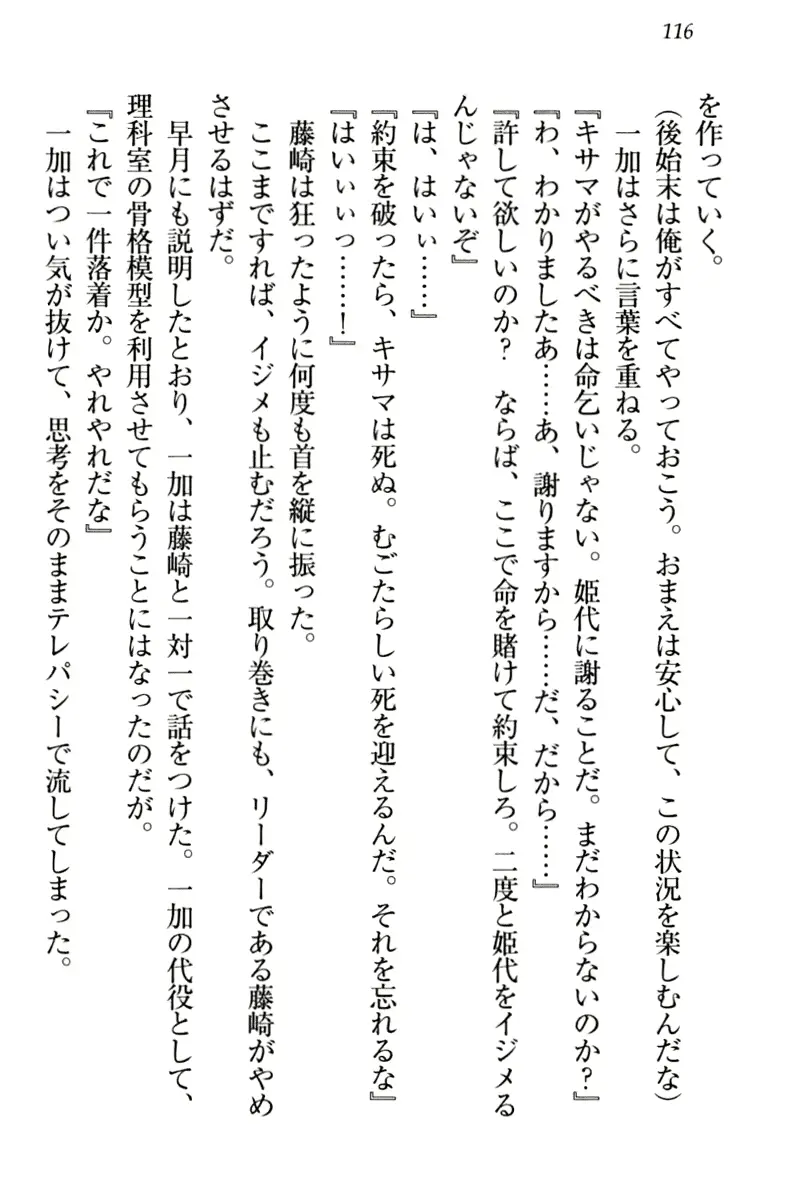 116
を作っていく。
（後始末は俺がすべてやっておこう。おまえは安心して、この状況を楽しむんだな）
　一加はさらに言葉を重ねる。
『キサマがやるべきは命乞いじゃない。姫代に謝ることだ。まだわからないのか？』
『わ、わかりましたあ……あ、謝りますから……だ、だから……』
『許して欲しいのか？　ならば、ここで命を賭けて約束しろ。二度と姫代をイジメる
んじゃないぞ』
『は、はいぃ……』
『約束を破ったら、キサマは死ぬ。むごたらしい死を迎えるんだ。それを忘れるな』
『はいぃぃっ……！』
　藤崎は狂ったように何度も首を縦に振った。
　ここまですれば、イジメも止むだろう。取り巻きにも、リーダーである藤崎がやめ
させるはずだ。
　早月にも説明したとおり、一加は藤崎と一対一で話をつけた。一加の代役として、
理科室の骨格模型を利用させてもらうことにはなったのだが。
『これで一件落着か。やれやれだな』
　一加はつい気が抜けて、思考をそのままテレパシーで流してしまった。